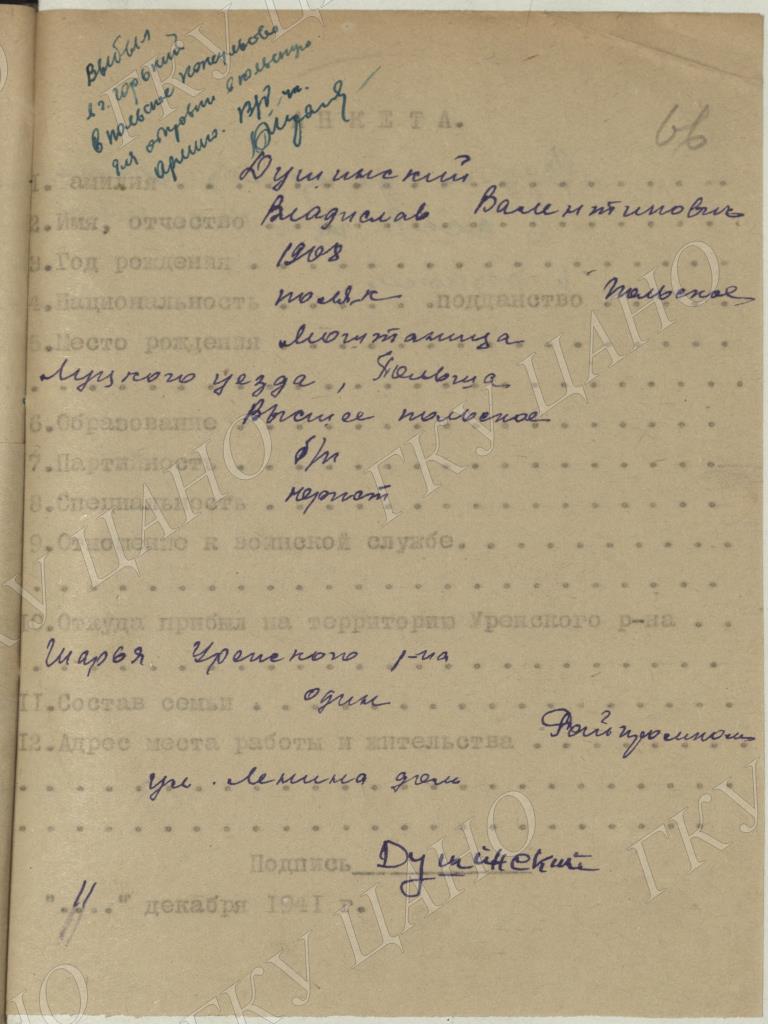 Выбыл
в г. Горький
в польское консульство
для отправки в польскую
армию.
АНКЕТА.
66
1. Фамилия . . Душинский
2. Имя, отчество . Владислав Валентинович
3. Год рождения . 1908
4. Национальность . поляк . подданство . Польское
5. Место рождения
Луцкого уезда, Польша
6. Образование . Высшее польское
7. Партийность . . б/п
8. Специальность . юрист
9. Отношение к воинской службе. . . . . . . .
10. Откуда прибыл на территорию Уренского р-на . .
Шарья Уренского р-на
11. Состав семьи . . один
12. Адрес места работы и жительства . . Райпромком
ул. Ленина дом
Подпись Душинский
"11" декабря 1941 г.
ГКУ ЦАНО